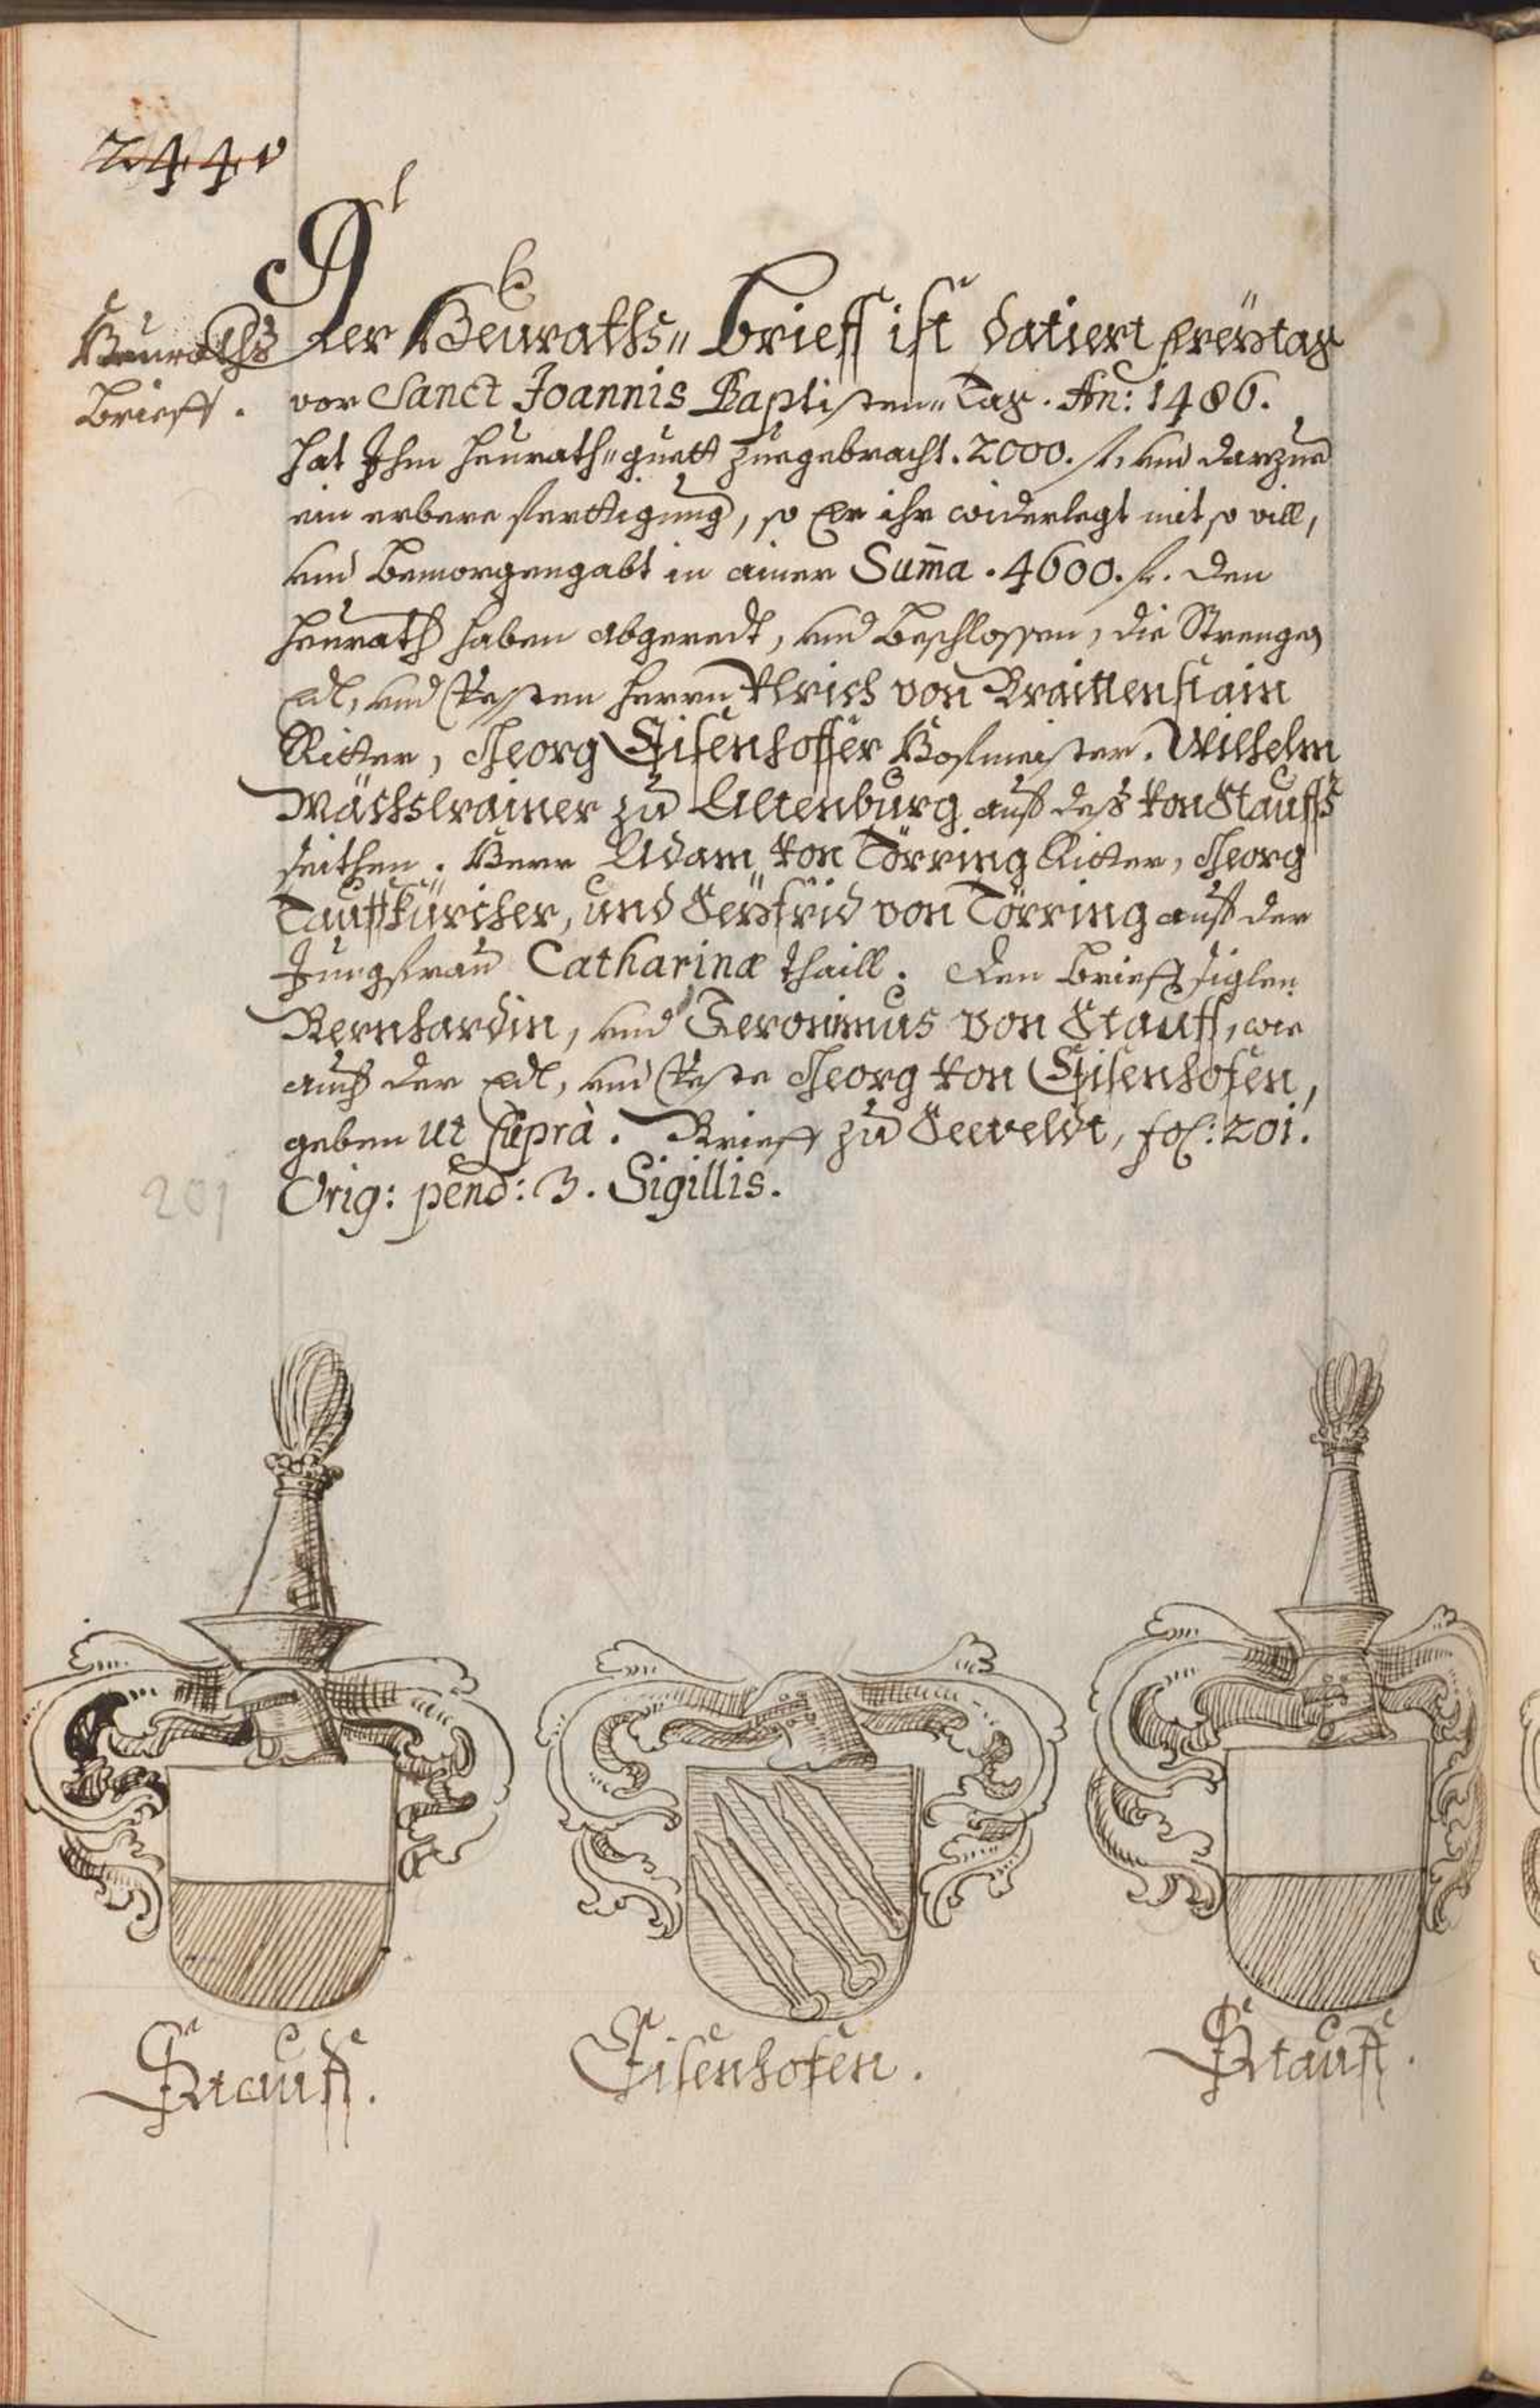 244v
Heuraths
Brieff.
Der Heuraths„ Brieff ist datiert Freÿtag
vor Sanct Joannis Baptisten„ Tag. An: 1486.
hat Ihm heurath„guett zuegebracht. 2000. fl. und darzue
ein erbere ferttigung, so Er ihr widerlegt mit so vill,
und Bemorgengabt in ainer Sum̄a. 4600. fl. Den
Heurath haben abgeredt, und Beschlossen, die Strengen
Edl, und Vesten Herrn Ulrich von Braittenstain
Ritter, Georg Eisenhoffer Hofmeister. Wilhelm
Mächslrainer zu Altenburg auß deß von Stauffs
seithen. Herr Adam von Törring Ritter, Georg
Tauffkürcher, und Seÿfrid von Törring auß der
Jungfrau Catharinæ thaill. Den Brieff siglen
Bernhardin, und Jeronimus von Stauff, wie
auch der Edl, und Veste Georg von Eisenhofen,
geben ut suprà. Brieff zu Seeveldt, fol: 201.
Orig: pend: 3. Sigillis.
201
Stauff.
Eisenhofen.
Stauff.